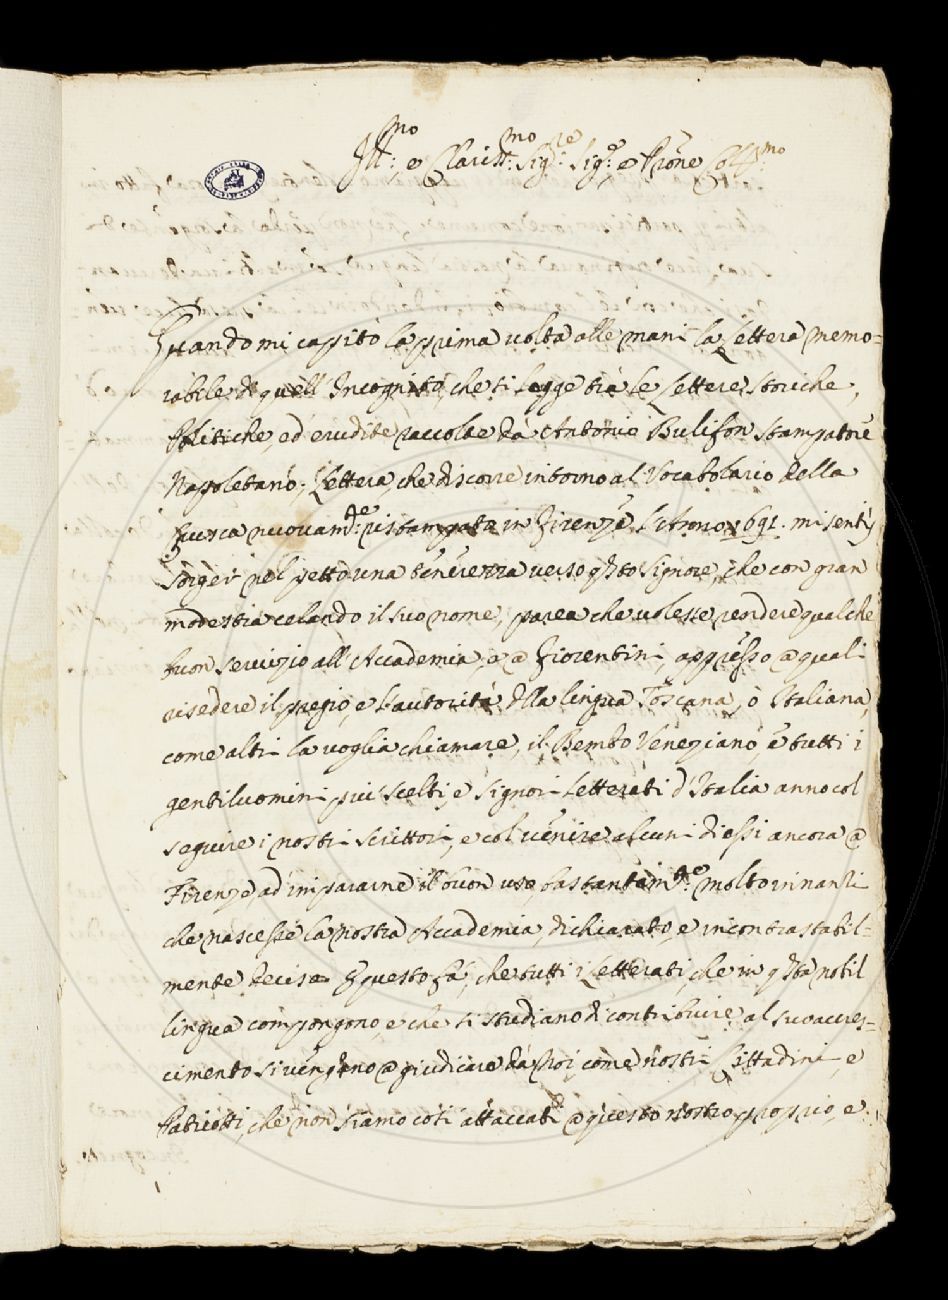 Ill:mo, e Clariss:mo Sig:re Sig:e, e Prone Col:mo
Quando mi capitò la prima volta alle mani la Lettera memo=
rabile di quell' Incognito, che si legge trà le Lettere storiche,
Politiche, ed erudite raccolte dà Antonio Bulifon stampatore
Napoletano; Lettera, che discorre intorno al Vocabolario della
Crusca nuovam:te ristampato in Firenze l'Anno 1691. mi sentij
sorger nel petto una tenerezza verso q̃sto Signore, che con gran
modestia celando il suo nome, parea che volesse rendere qualche
buon servizio all' Accademia, e a Fiorentini, appresso a quali
risedere il pregio, e l'autorità dlla lingua Toscana, ò Italiana,
come altri la voglia chiamare, il Bembo Veneziano, e tutti i
gentiluomini più scelti, e Signori Letterati d'Italia anno col
seguire i nostri scrittori, e col venire alcuni di essi ancora a
Firenze ad impararne il buon uso, bastantem:te molto innanzi
che nascesse la nostra Accademia, dichiarato, e incontrastabil=
mente deciso E questo fà, che tutti i Letterati, che in q̃sta nobil
lingua compongono, e che si studiano di contribuire al suo accres=
cimento si vengano a giudicare dà Noi come nostri Cittadini, e
Patriotti, che non siamo così attaccati a questo nostro proprio, e